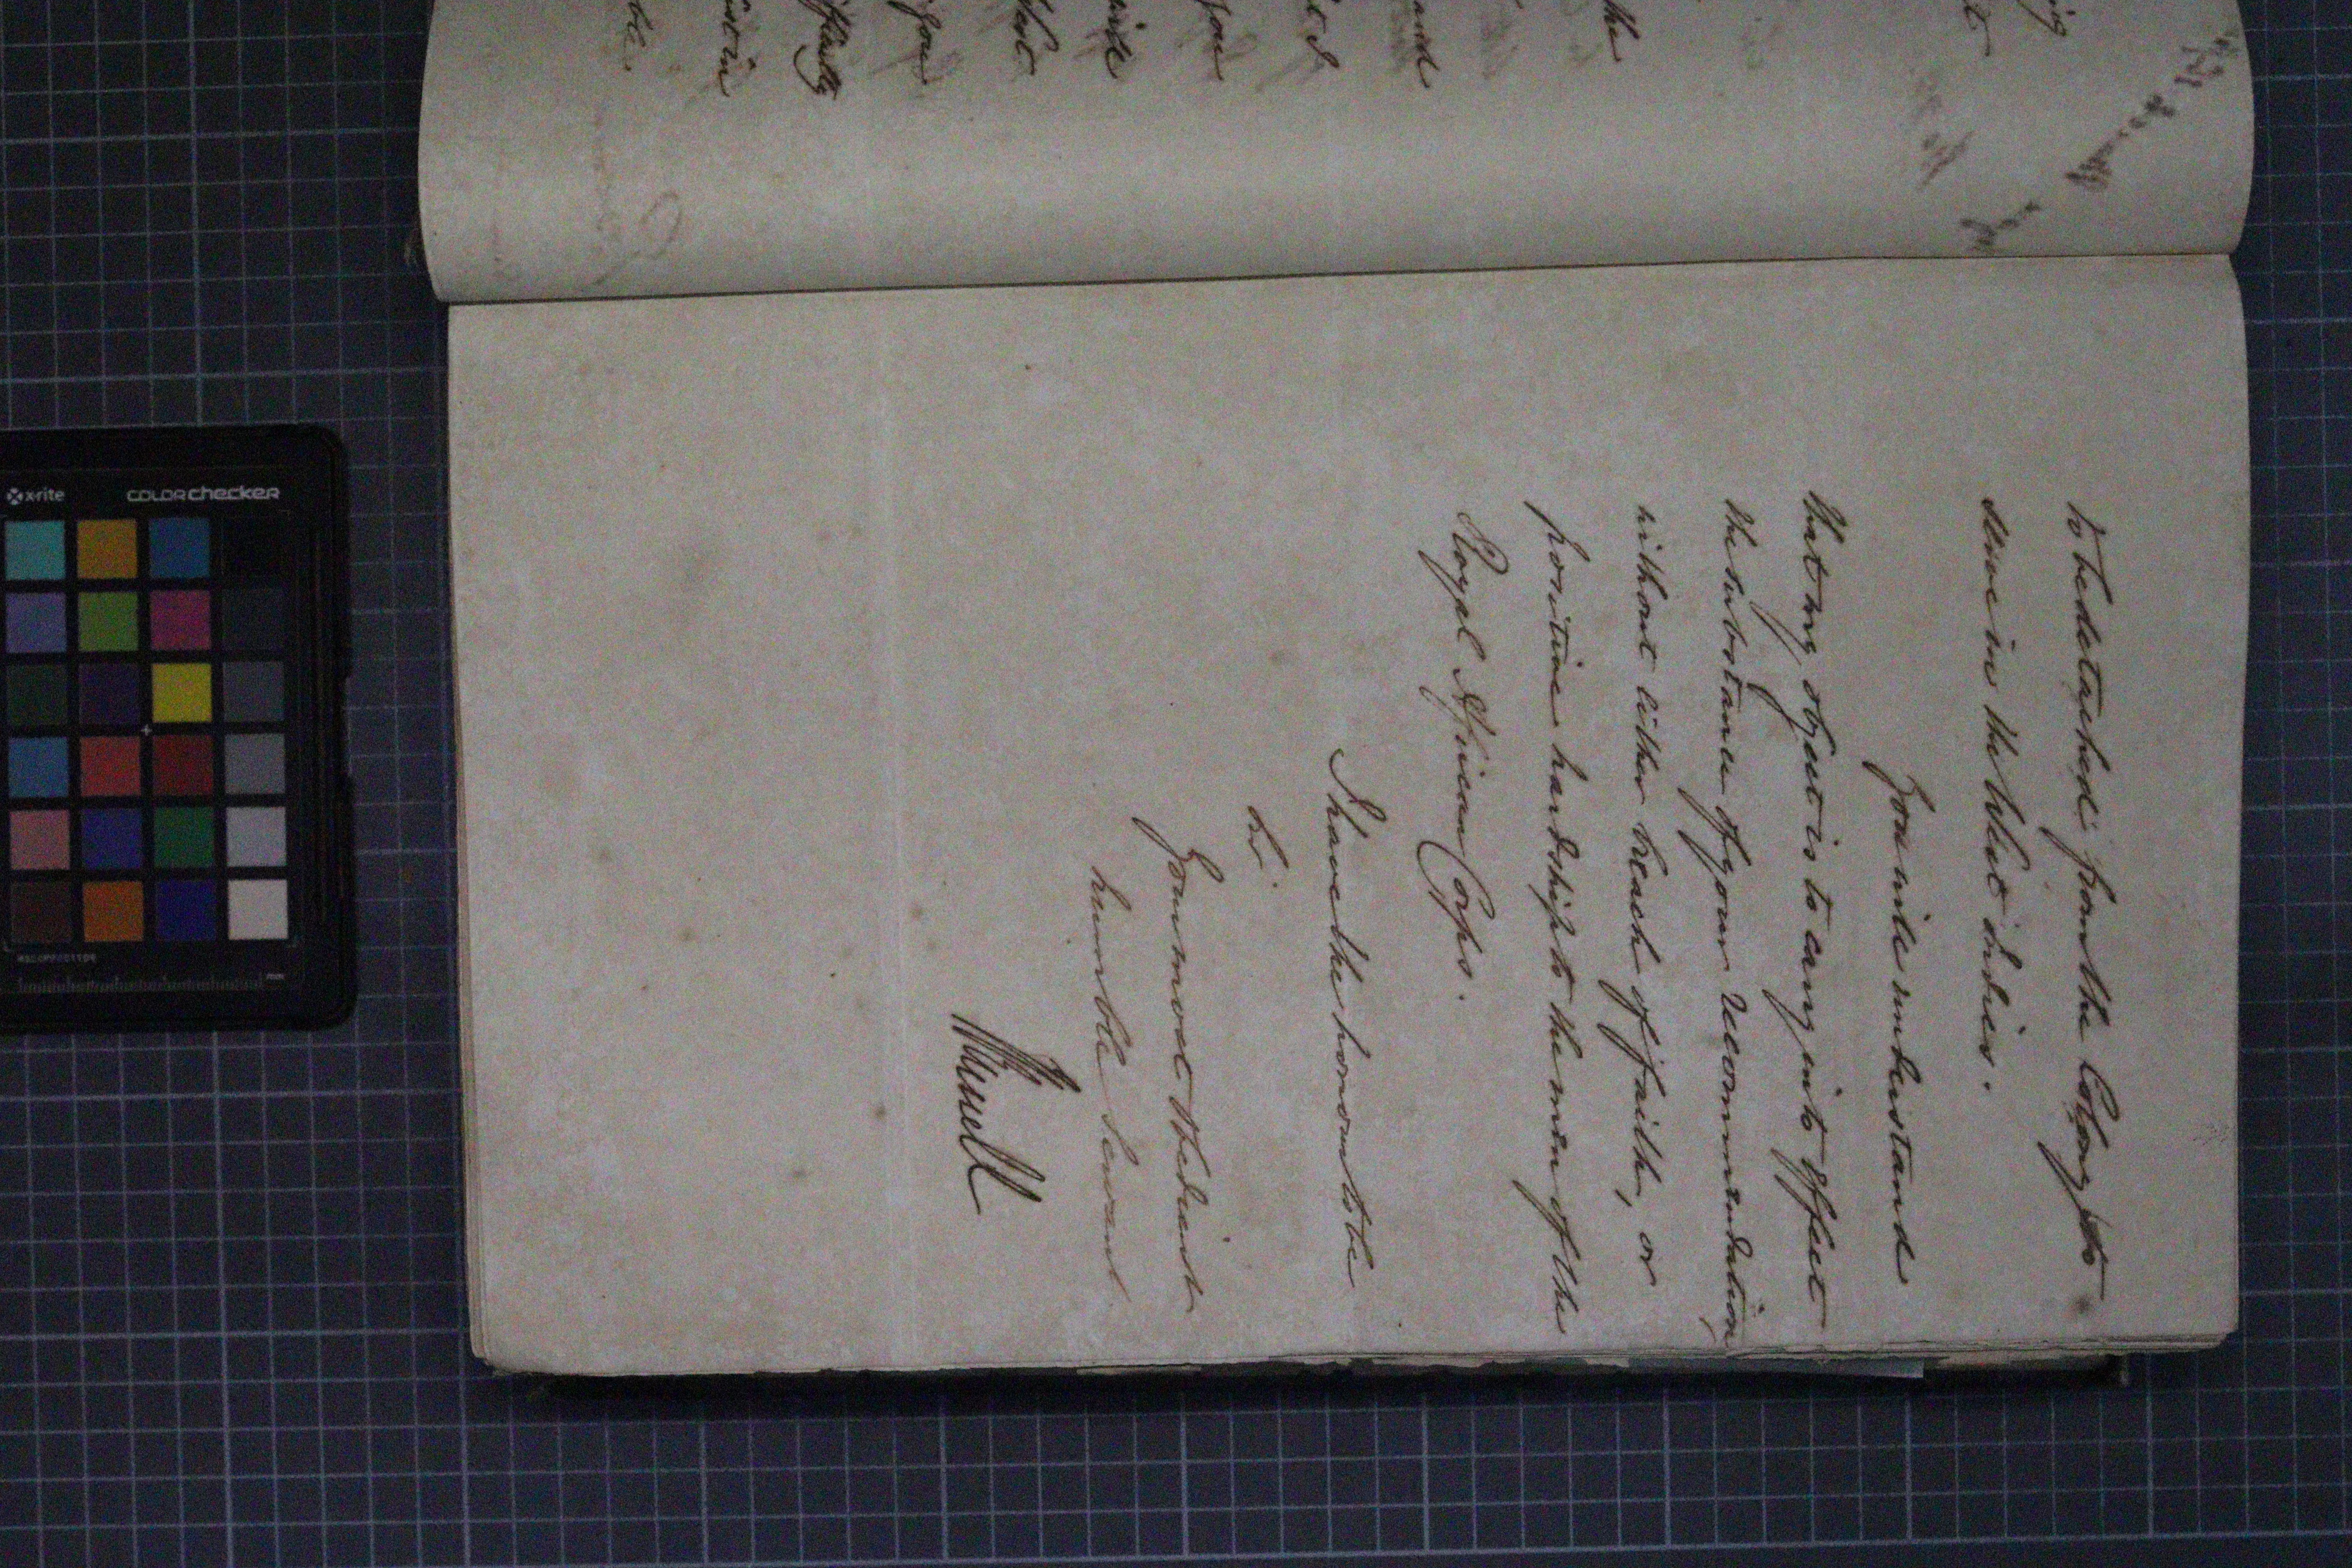 to be detached from the Colony to
serve in the West indies.
You will understand
that my object is to carry into effect
the substance of your recommendation
without either breach of faith, or
positive hardship to the men of the
Royal African Corps.
I have the honour to be
Sir
Your most Obedient
humble Servant
the
and
t I
you
that
you
x-rite
colorchecker
mm